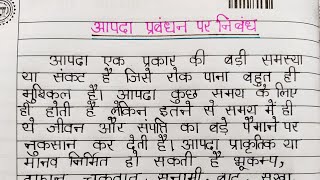 आपदा प्रबंधन पर निबंध
आपदा एक प्रकार की बडी समस्या
या संकट है जिसे रोक पाना बहुत ही
मुश्किल है। आपदा कुछ समय के लिए
ही होती है लेकिन इतने से समय में ही
ये जीवन और संपत्ति का बड़े पैमाने पर
नुकसान कर देती है। आपदा प्राकृतिक या
मानव निर्मित हो सकती है भूकम्प,
तूफान, चक्रवात, सुनामी, बाढ़, सूखा